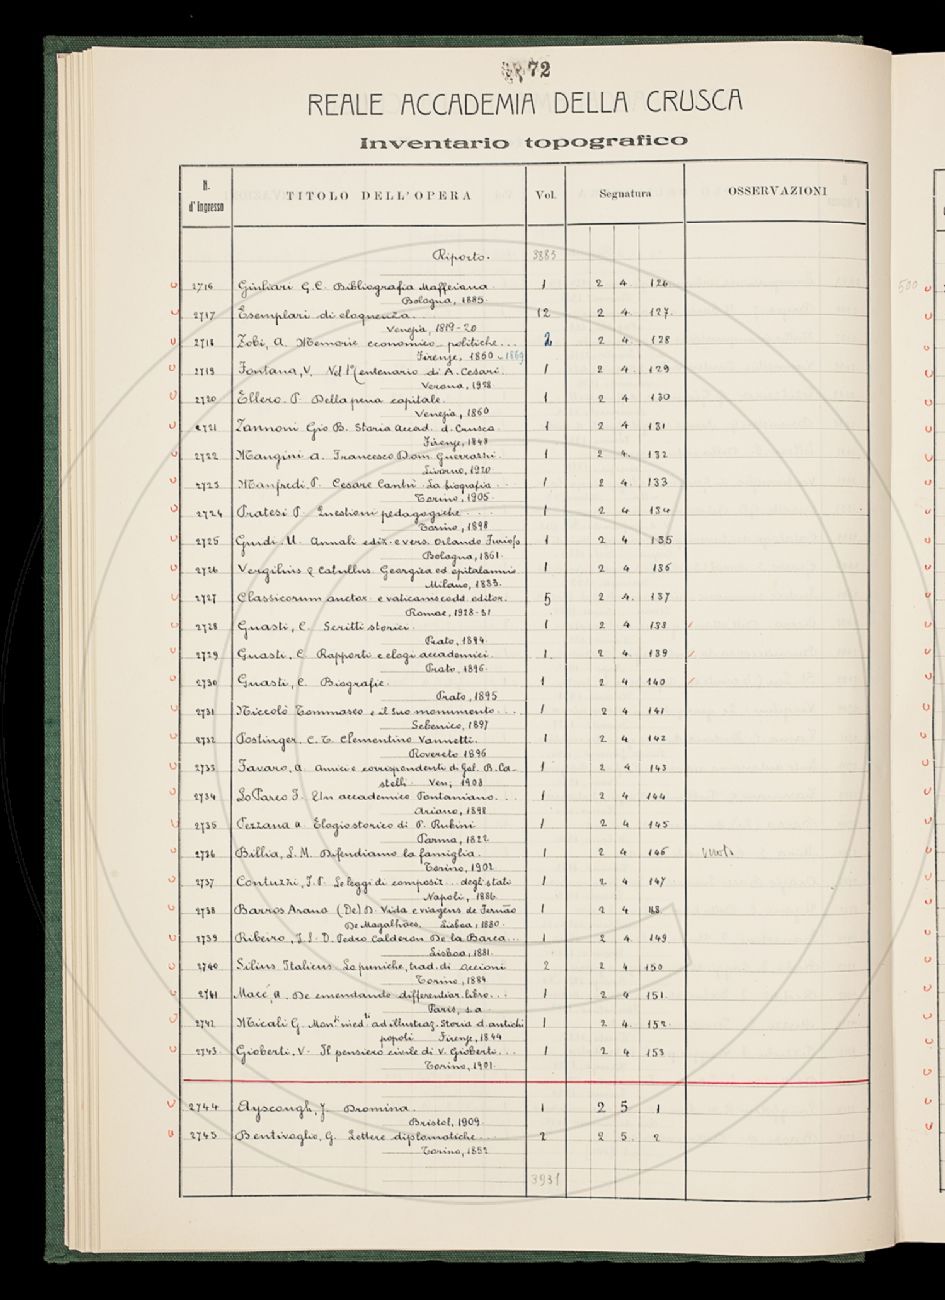 72
REALE ACCADEMIA DELLA CRUSCA
Inventario topografico
N. d'Ingresso TITOLO DELL'OPERA Vol. Segnatura OSSERVAZIONI
Riporto. 3883
2716 Giuliari G. C. Bibliografia Maffeiana 1 2 4 126
Bologna, 1885
2717 Esemplari di eloquenza... 12 2 4 127
Venezia, 1819-20
2718 Zobi, A. Memorie economico-politiche... 2 2 4 128
Firenze, 1860-1869
2719 Fontana, V. Nel 1º Centenario di A. Cesari. 1 2 4 129
Verona, 1928
2720 Ellero. P. Della pena capitale. 1 2 4 130
Venezia, 1860
2721 Zannoni Gio B. Storia Accad. d. Crusca 1 2 4 131
Firenze, 1848
2722 Mangini A. Francesco Dom. Guerrazzi. 1 2 4. 132
Livorno, 1920
2723 Manfredi, P. Cesare Cantù. La biografia... 1 2 4 133
Torino, 1905
2724 Pratesi P. Questioni pedagogiche... 1 2 4 134
Torino, 1898
2725 Guidi. U. Annali ediz. e vers. Orlando Furioso 1 2 4 135
Bologna, 1861.
2726 Vergilius & Catullus. Georgica ed epitalamio 1 2 4 136
Milano, 1883.
2727 Classicorum auctor. e vaticanis codd. editor. 5 2 4. 137
Romae, 1928-31
2728 Guasti, C. Scritti storici. 1 2 4 138
Prato, 1894
2729 Guasti, C. Rapporti e elogi accademici. 1 2 4 139
Prato, 1896.
2730 Guasti, C. Biografie. 1 2 4 140
Prato, 1895
2731 Niccolò Tommaseo e il suo monumento.... 1 2 4 141
Sebenico, 1897
2732 Postinger. C. T. Clementino Vannetti. 1 2 4 142
Rovereto 1896
2733 Favaro, A. Amici e corrispondenti di Gal. B. Ca- 1 2 4 143
stelli. Ven; 1908
2734 Lo Parco F. Un accademico Pontaniano... 1 2 4 144
Ariano, 1898
2735 Pezzana A. Elogio storico di P. Rubini 1 2 4 145
Parma, 1822
2736 Billia, L. M. Difendiamo la famiglia. 1 2 4 146
Torino, 1902
2737 Contuzzi, F. P. Le leggi di composiz... degli stati 1 2 4 147
Napoli, 1886
2738 Barros Arano (De) D. Vida e viagens de Fernão 1 2 4 148
De Magalhães. Lisboa, 1880.
2739 Ribeiro, J. S. D. Pedro Calderon De la Barca... 1 2 4 149
Lisboa, 1881.
2740 Silius Italicus. Le puniche, trad. di Occioni 2 2 4 150
Torino, 1884
2741 Macé, A. De emendando differentiar. libro... 1 2 4 151.
Paris, s.a
2742 Micali G. Monti. ined.ti ad illustraz. Storia d. antichi 1 2 4. 152.
popoli Firenze, 1844
2743 Gioberti, V. Il pensiero civile di V. Gioberti... 1 2 4 153
Torino, 1901.
2744 Ayscough, J. Dromina. 1 2 5 1
Bristol, 1909.
2745 Bentivoglio, G. Lettere diplomatiche... 2 2 5. 2
Torino, 1852
3931
500